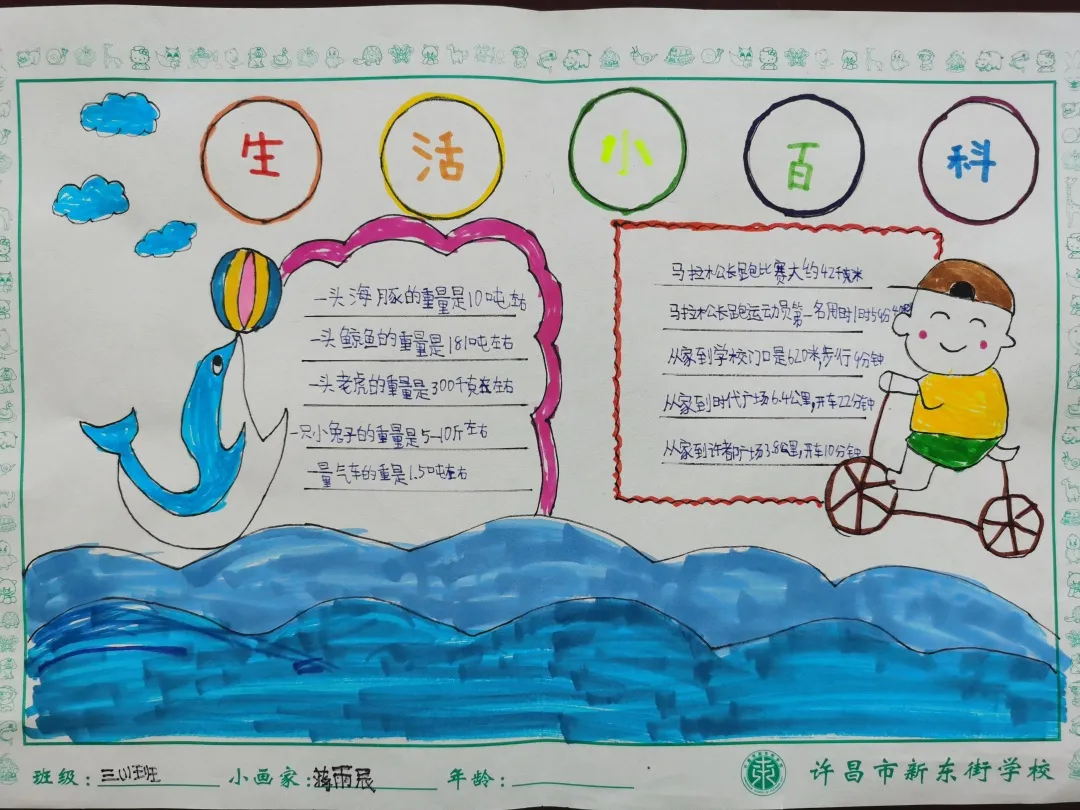 生活小百科
一头海豚的重量是10吨左右
一头鲸鱼的重量是181吨左右
一头老虎的重量是300千克左右
一只小兔子的重量是5-10斤左右
一量气车的重是1.5吨左右
马拉松长跑比赛大约42千米
马拉松长跑运动员第一名用时1时54分
从家到学校门口是620米,步行9分钟
从家到时代广场6.4公里,开车22分钟
从家到许都广场3.8公里,开车10分钟
班级:三(1)班
小画家:蒋雨辰
年龄:
许昌市新东街学校